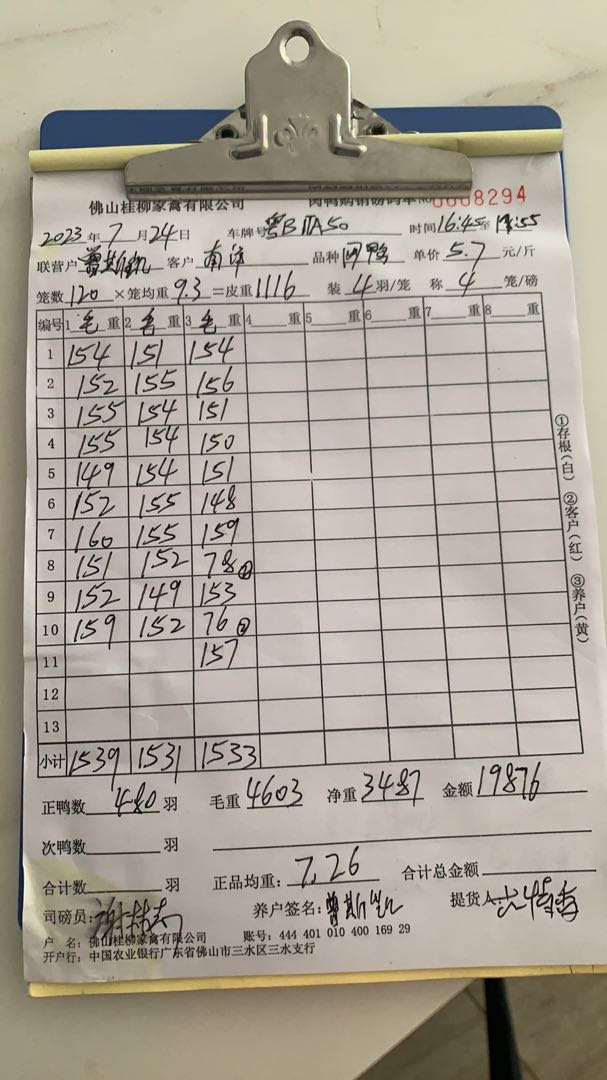 佛山桂柳家禽有限公司 肉鸭购销磅码单 No 0008294
2023年7月24日 车牌号 粤B 时间16:45至
联营户 客户 南洋 品种 肉鸭 单价5.7元/斤
笼数120×笼均重9.3=皮重1116 装4羽/笼 称4笼/磅
编号 1毛重 2毛重 3毛重 4重 5重 6重 7重 8重
1 154 151 154
2 152 155 156
3 155 154 151
4 155 154 150
5 149 154 151
6 152 155 148
7 160 155 159
8 151 152 78②
9 152 149 153
10 159 152 76②
11 157
12
13
小计 1539 1531 1533
①存根(白) ②客户(红) ③养户(黄)
正鸭数480羽 毛重4603 净重3487 金额19876
次鸭数 羽
合计数 羽 正品均重:7.26 合计总金额
司磅员: 养户签名: 提货人:
户 名:佛山桂柳家禽有限公司 账号:444 401 010 400 169 29
开户行:中国农业银行广东省佛山市三水区三水支行